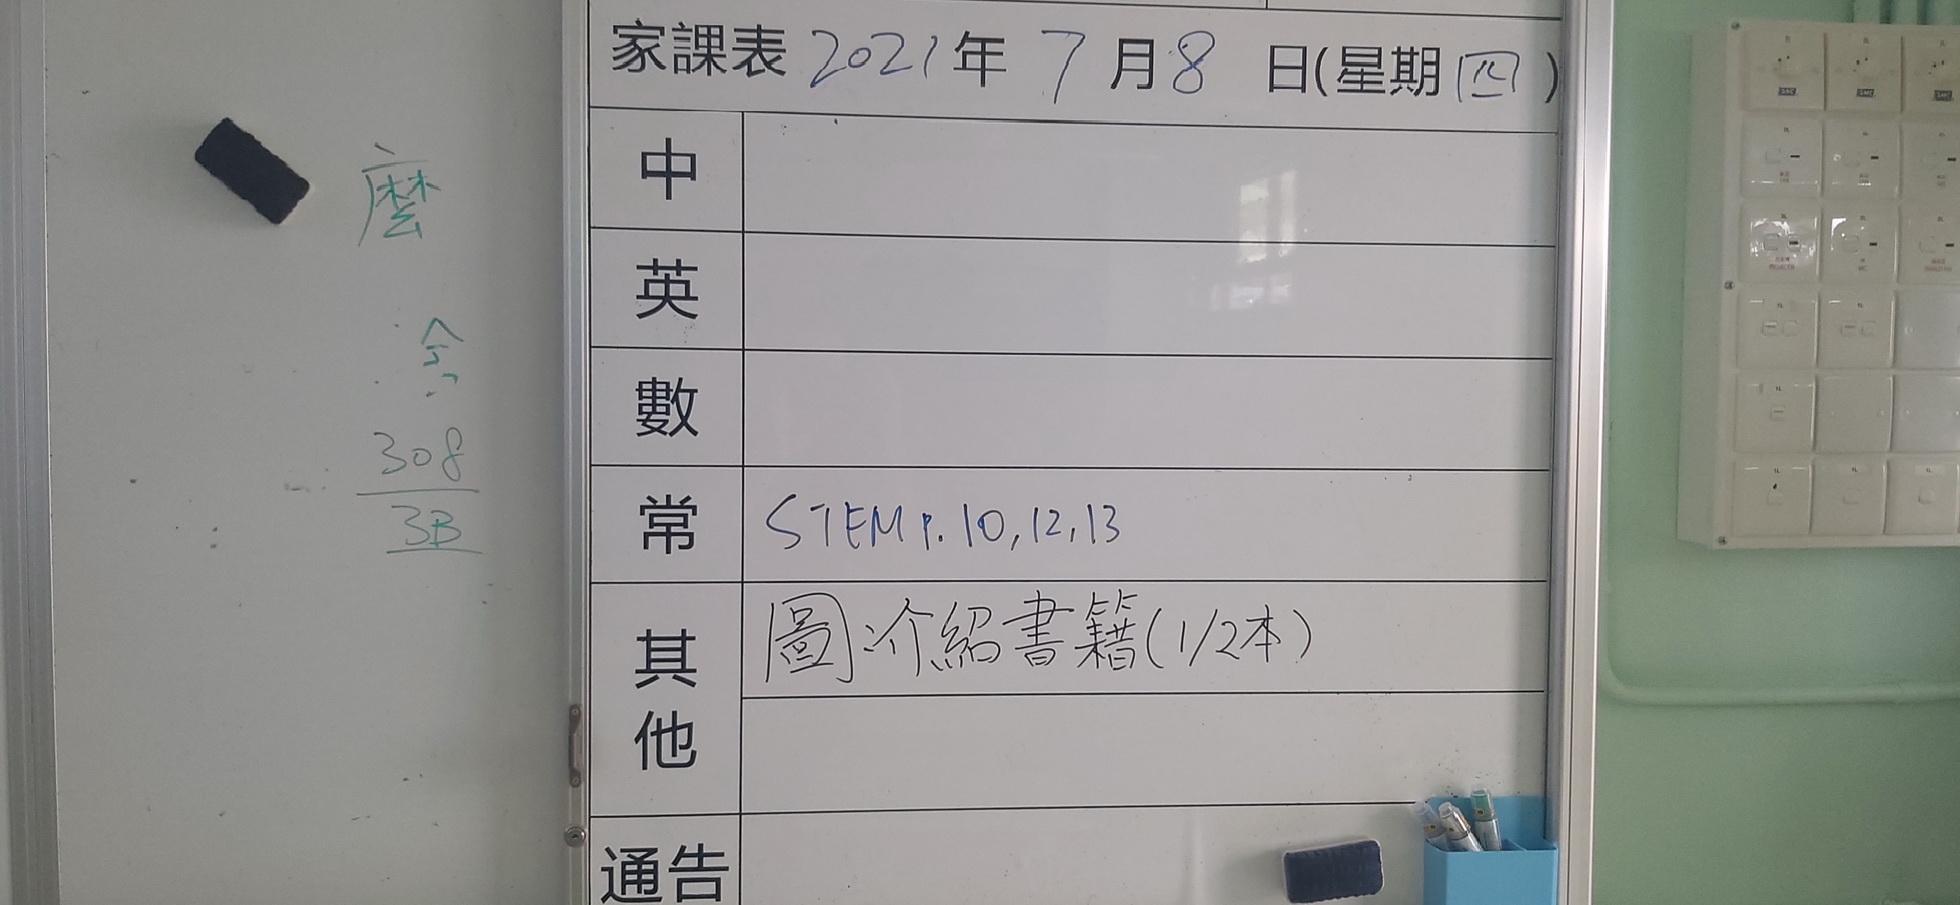 家課表 2021年 7月8日(星期四)
中
英
數
常 STEM P.10,12,13
其他 圖:介紹書籍(1/2本)
通告
麼
308
3B